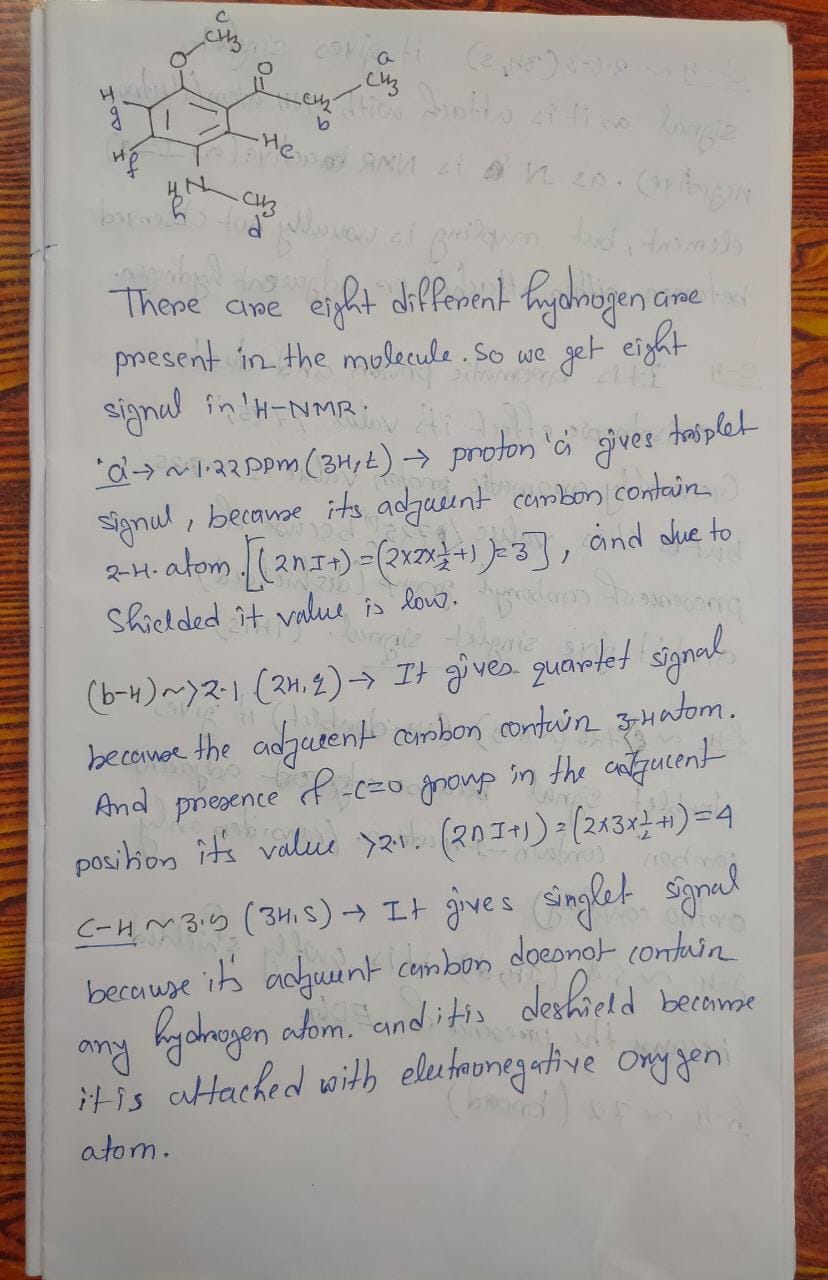 c
CH3
O
O
a
CH3
H
g
CH2
b
H
f
H
e
H
N
h
CH3
d
There are eight different hydrogen are
present in the molecule. So we get eight
signal in 'H-NMR.
'a' → ~1.22 ppm (3H, t) → proton 'a' gives triplet
signal, because its adjacent carbon contain
2-H. atom. [(2nI+) = (2x2x½+1) = 3], and due to
Shielded it value is low.
(b-H) ~>2.1 (2H, q) → It gives quartet signal
because the adjacent carbon contain 3-H atom.
And presence of -C=O group in the adjacent
position it's value >2.1. (2nI+1) = (2x3x½+1) = 4
C-H ~ 3.5 (3H, S) → It gives singlet signal
because it's adjacent carbon doesnot contain
any hydrogen atom. and it is deshield because
it is attached with electronegative oxygen
atom.